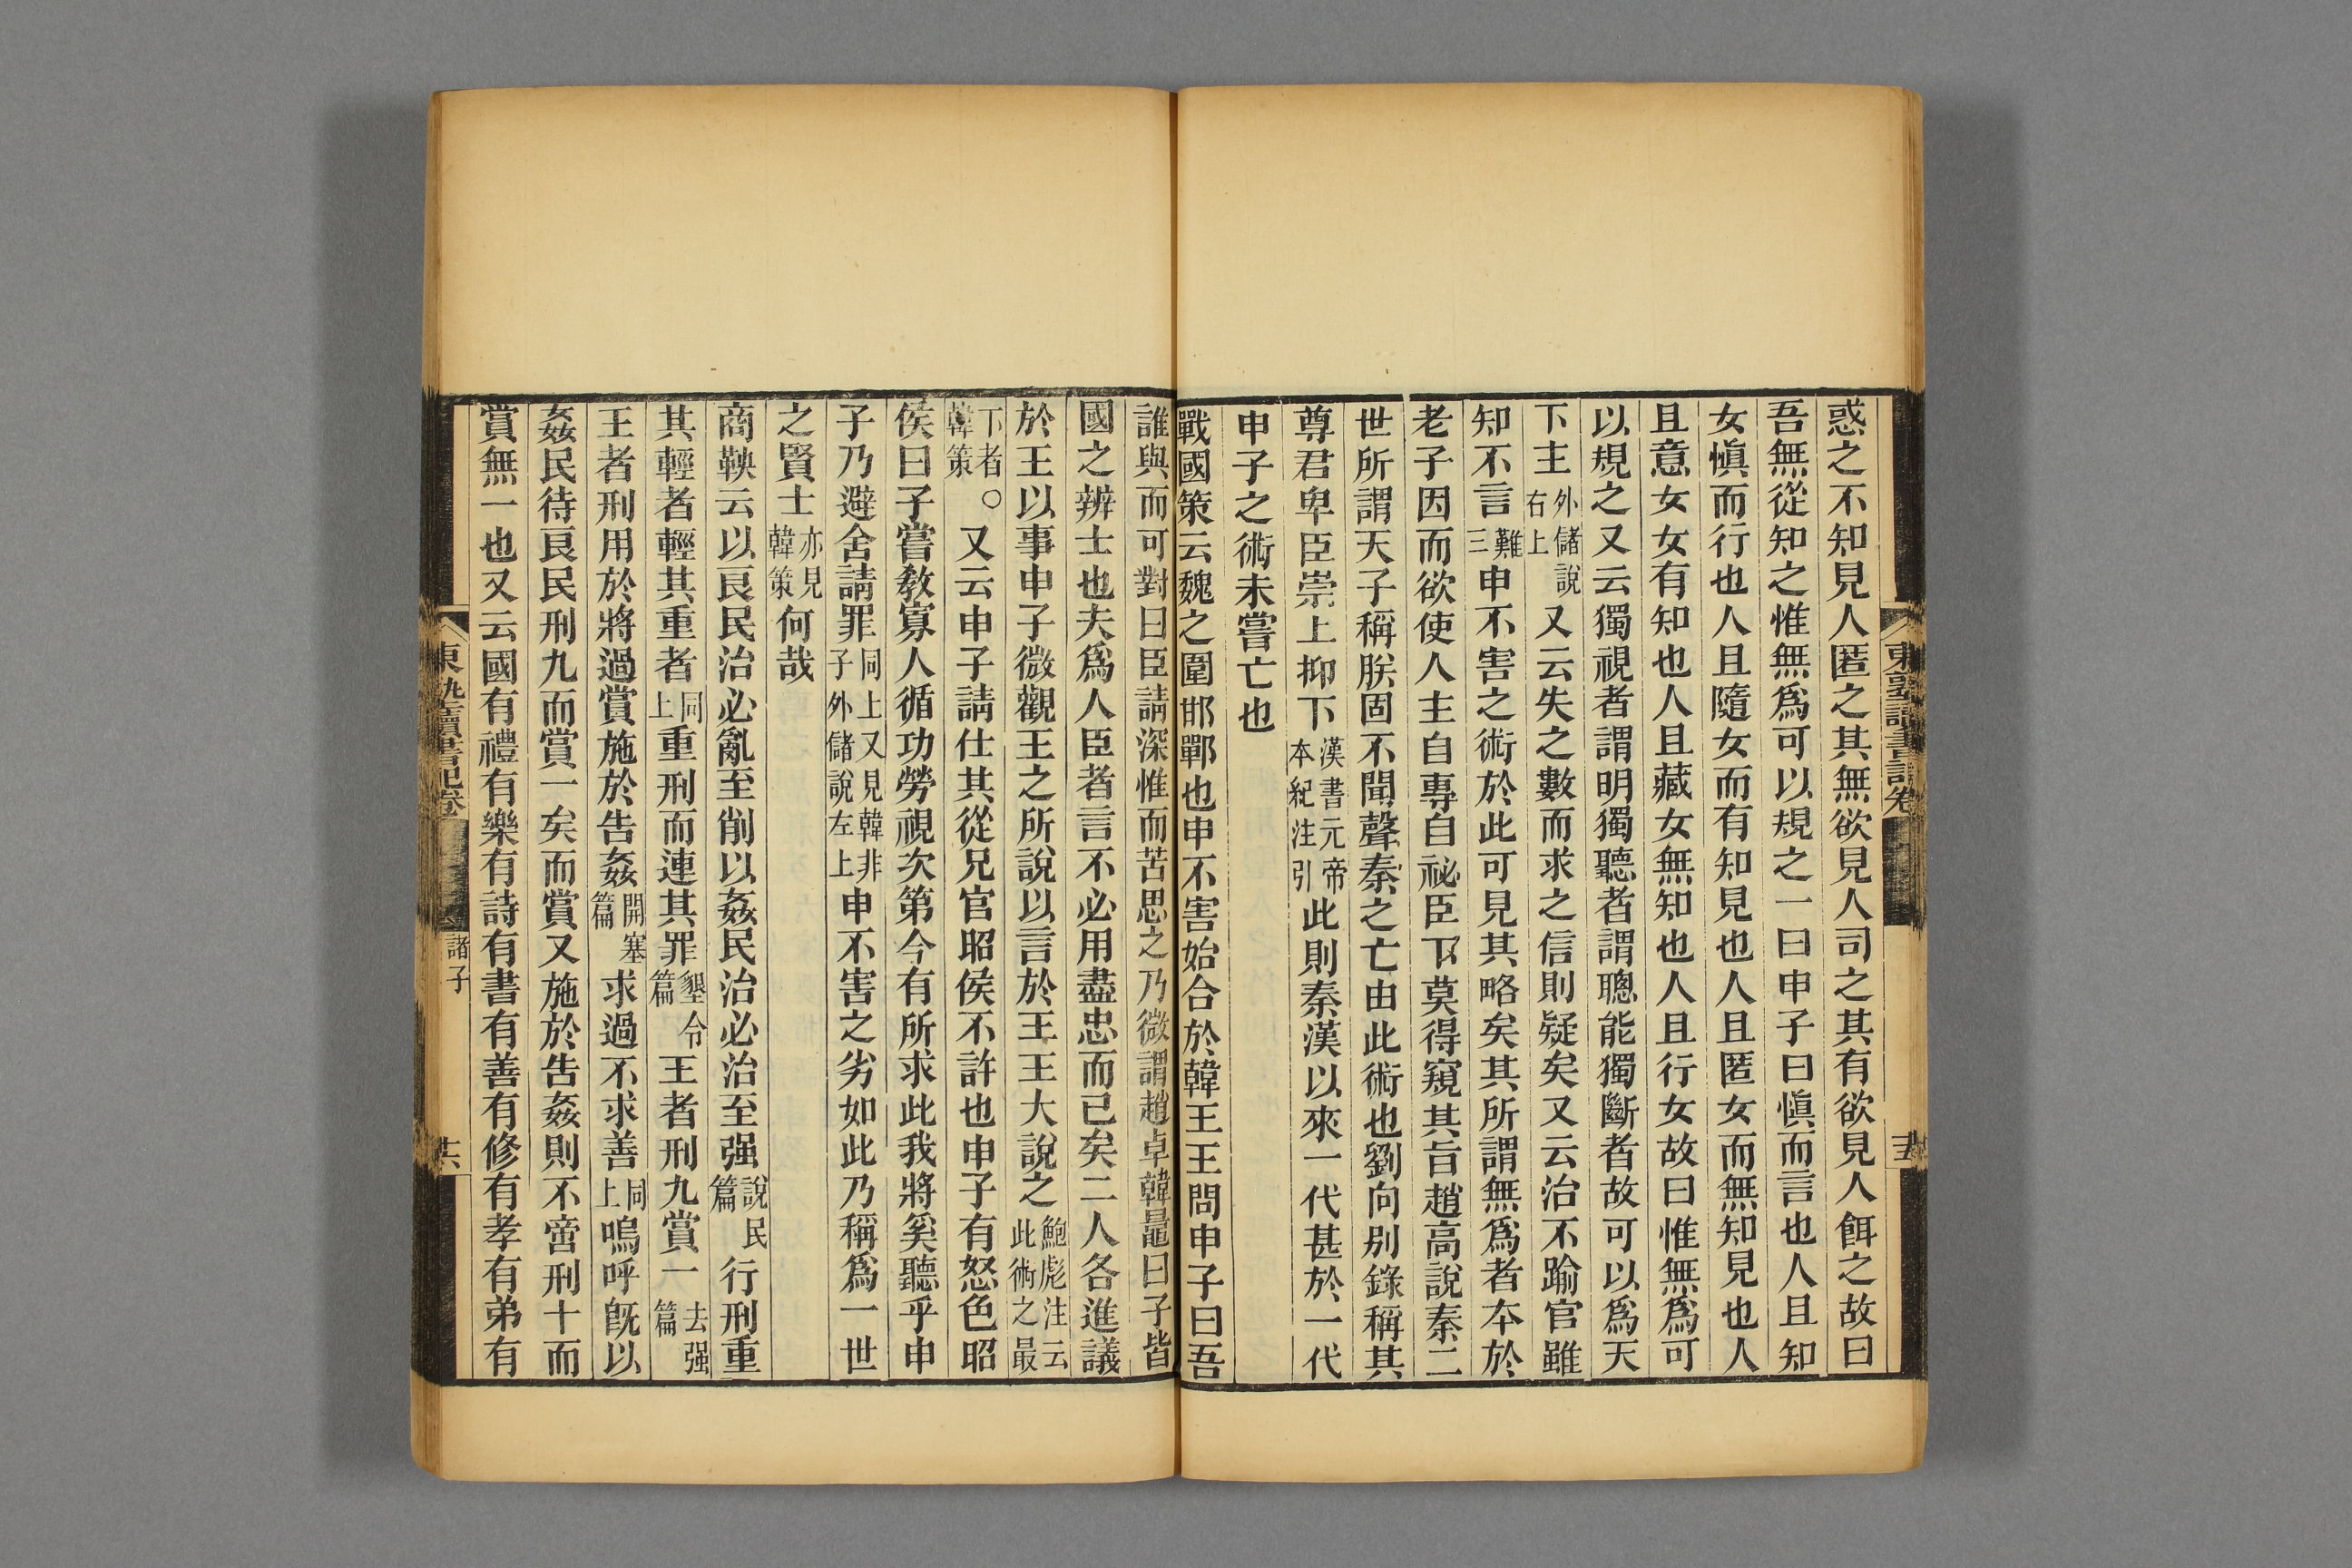 惑之不知見人匿之其無欲見人司之其有欲見人餌之故曰
吾無從知之惟無爲可以規之一曰申子曰愼而言也人且知
女愼而行也人且隨女而有知見也人且匿女而無知見也人
且意女女有知也人且藏女無知也人且行女故曰惟無爲可
以規之又云獨視者謂明獨聽者謂聰能獨斷者故可以爲天
下主外儲說右上又云失之數而求之信則疑矣又云治不踰官雖
知不言難三申不害之術於此可見其略矣其所謂無爲者本於
老子因而欲使人主自專自祕臣下莫得窺其旨趙高說秦二
世所謂天子稱朕固不聞聲秦之亡由此術也劉向別錄稱其
尊君卑臣崇上抑下漢書元帝本紀注引此則秦漢以來一代甚於一代
申子之術未嘗亡也
戰國策云魏之圍邯鄲也申不害始合於韓王王問申子曰吾
誰與而可對曰臣請深惟而苦思之乃微謂趙卓韓鼂曰子皆
國之辨士也夫爲人臣者言不必用盡忠而已矣二人各進議
於王以事申子微觀王之所說以言於王王大說之鮑彪注云此術之最
下者韓策○又云申子請仕其從兄官昭侯不許也申子有怒色昭
侯曰子嘗敎寡人循功勞視次第今有所求此我將奚聽乎申
子乃避舍請罪同上又見韓非子外儲說左上申不害之劣如此乃稱爲一世
之賢士亦見韓策何哉
商鞅云以良民治必亂至削以姦民治必治至强說民篇行刑重
其輕者輕其重者同上重刑而連其罪墾令篇王者刑九賞一去强篇
王者刑用於將過賞施於告姦開塞篇求過不求善同上嗚呼旣以
姦民待良民刑九而賞一矣而賞又施於告姦則不啻刑十而
賞無一也又云國有禮有樂有詩有書有善有修有孝有弟有
東塾讀書記卷
諸子
十五
東塾讀書記卷
十六